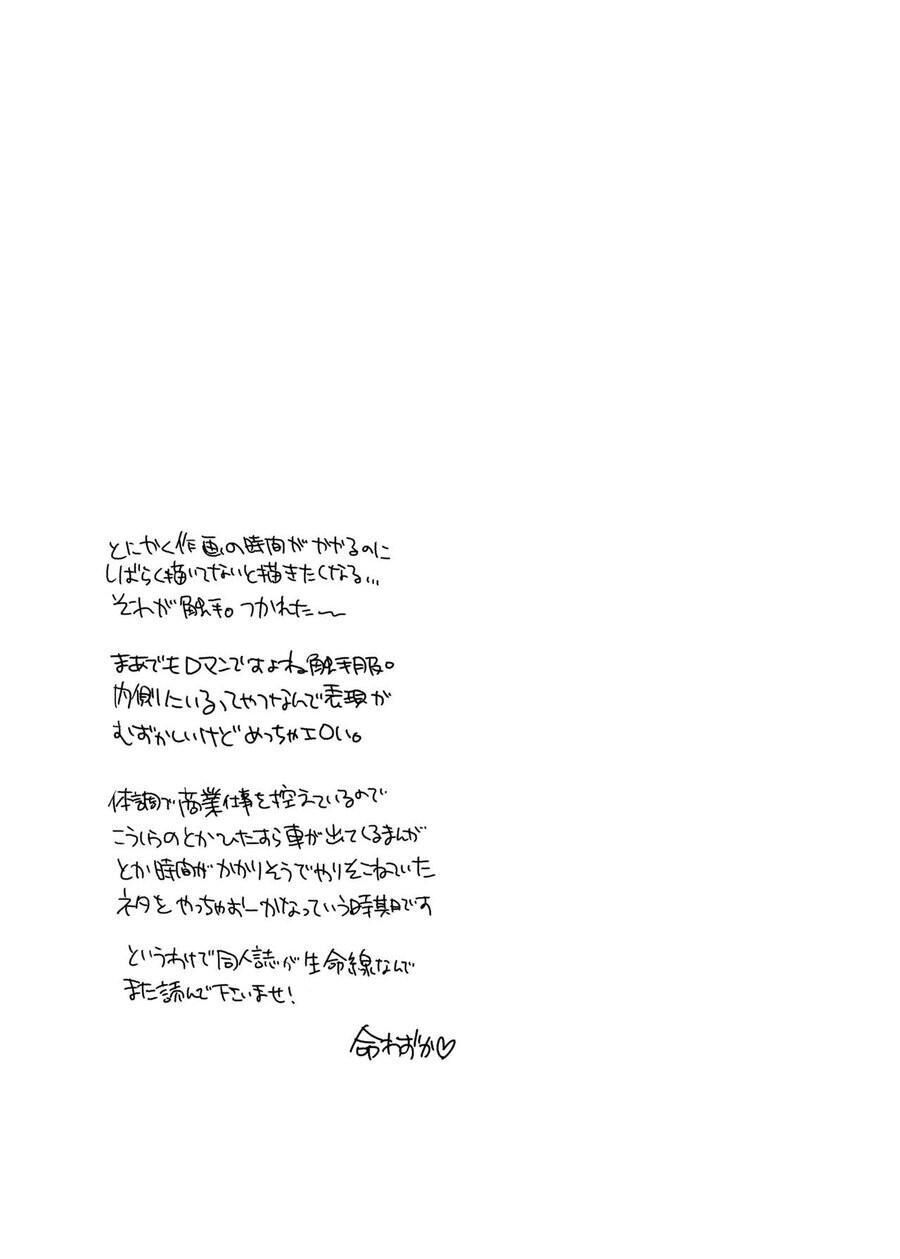 とにかく作画の時間がかかるのに
しばらく描いてないと描きたくなる…
それが触手。つかれた〜
まあでもロマンですよね触手服。
内側にいるってやつなんで表現が
むずかしいけどめっちゃエロい。
体調で商業仕事を控えているので
こういうのとかひたすら車が出てくるまんが
とか時間がかかりそうでやりそこねていた
ネタをやっちゃおーかなっていう時期です
というわけで同人誌が生命線なんで
また読んで下さいませ!
命わずか♡